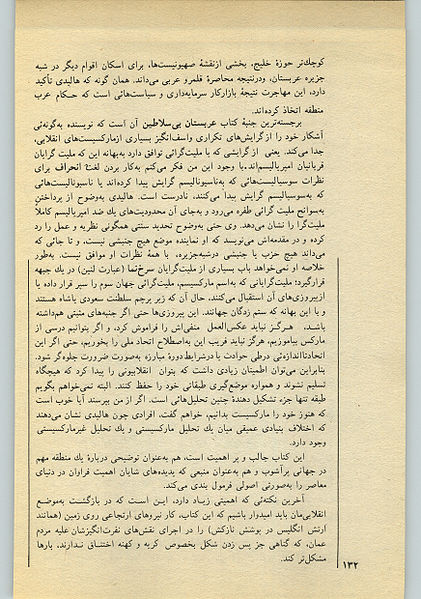 کوچك‌تر حوزهٔ خلیج، بخشی ازنقشهٔ صهیونیست‌ها، برای اسکان اقوام دیگر در شبه
جزیره عربستان، ودرنتیجه محاصرهٔ قلمرو عربی می‌داند. همان گونه که هالیدی تأکید
دارد، این مهاجرت نتیجهٔ بازارکار سرمایه‌داری و سیاست‌هائی است که حکام عرب
منطقه اتخاذ کرده‌اند.
برجسته‌ترین جنبهٔ کتاب عربستان بی‌سلاطین آن است که نویسنده به‌گونه‌ئی
آشکار خود را ازگرایش‌های تکراری واسف‌انگیز بسیاری ازمارکسیست‌های انقلابی،
جدا می‌کند. یعنی از گرایشی که با ملیت‌گرائی توافق دارد به‌بهانه این که ملیت گرایان
قربانیان امپریالیسم‌اند. با وجود این من فکر می‌کنم به‌کار بردن لغت انحراف برای
نظرات سوسیالیست‌هائی که به‌ناسیونالیسم گرایش پیدا کرده‌اند یا ناسیونالیست‌هائی
که به‌سوسیالیسم گرایش پیدا می‌کنند، نادرست است. هالیدی به‌وضوح از پرداختن
به‌سوانح ملیت گرائی طفره می‌رود و به‌جای آن محدودیت‌های یك ضد امپریالیسم کاملاً
ملیت‌گرا را نشان می‌دهد. وی حتی به‌وضوح تحدید سنتی همگونی نظریه و عمل را رد
کرده و در مقدمه‌اش می‌نویسد که او نماینده موضع هیچ جنبشی نیست، و تا جائی که
می‌داند هیچ حزب یا جنبشی درشبه‌جزیره، با همهٔ نظرات او موافق نیست. به‌طور
خلاصه او نمی‌خواهد باب بسیاری از ملیت‌گرایان سرخ‌نما (عبارت لنین) در یك جبهه
قرارگیرد؛ ملیت‌گرایانی که به‌اسم مارکسیسم، ملیت‌گرائی جهان سوم را سپر قرار داده یا
ازپیروزی‌های آن استقبال می‌کنند، حال آن که زیر پرچم سلطنت سعودی یاشاه هستند
و با این بهانه که ستم زدگان جهانند. این پیروزی‌ها حتی اگر جنبه‌های مثبتی هم‌داشته
باشد. هرگز نباید عکس‌العمل منفی‌اش را فراموش کرد، و اگر بتوانیم درسی از
مارکس بیاموزیم، هرگز نباید فریب این به‌اصطلاح اتحاد ملی را بخوریم، حتی اگر این
اتحادتااندازه‌ئی درطی حوادث یا درشرایط‌دورهٔ مبارزه به‌صورت ضرورت جلوه‌گر شود.
بنابراین می‌توان اطمینان زیادی داشت که بتوان انقلابیونی را پیدا کرد که هیچگاه
تسلیم نشوند و همواره موضع‌گیری طبقاتی خود را حفظ کنند. البته نمی‌خواهم بگویم
طبقه تنها جزء تشکیل دهندهٔ چنین تحلیل‌هائی است. اگر از من بپرسند آیا خوب است
که هنوز خود را مارکسیست بدانیم، خواهم گفت، افرادی چون هالیدی نشان می‌دهند
که اختلاف بنیادی عمیقی میان یك تحلیل مارکسیستی و یك تحلیل غیرمارکسیستی
وجود دارد.
این کتاب جالب و پر اهمیت است، هم به‌عنوان توضیحی دربارهٔ یك منطقه مهم
در جهانی پرآشوب و هم به‌عنوان منبعی که پدیده‌های شایان اهمیت فراوان در دنیای
معاصر را به‌صورتی اصولی فرمول بندی می‌کند.
آخرین نکته‌ئی که اهمیتی زیاد دارد، این است که در بازگشت به‌موضع
انقلابی‌مان باید امیدوار باشیم که این کتاب، کار نیروهای ارتجاعی روی زمین (همانند
ارتش انگلیس در پوشش نازکش) را در اجرای نقش‌های نفرت‌انگیزشان علیه مردم
عمان، که گناهی جز پس زدن شکل بخصوص کریه و کهنه اختناق ندارند، بارها
مشکل‌تر کند.
۱۳۲